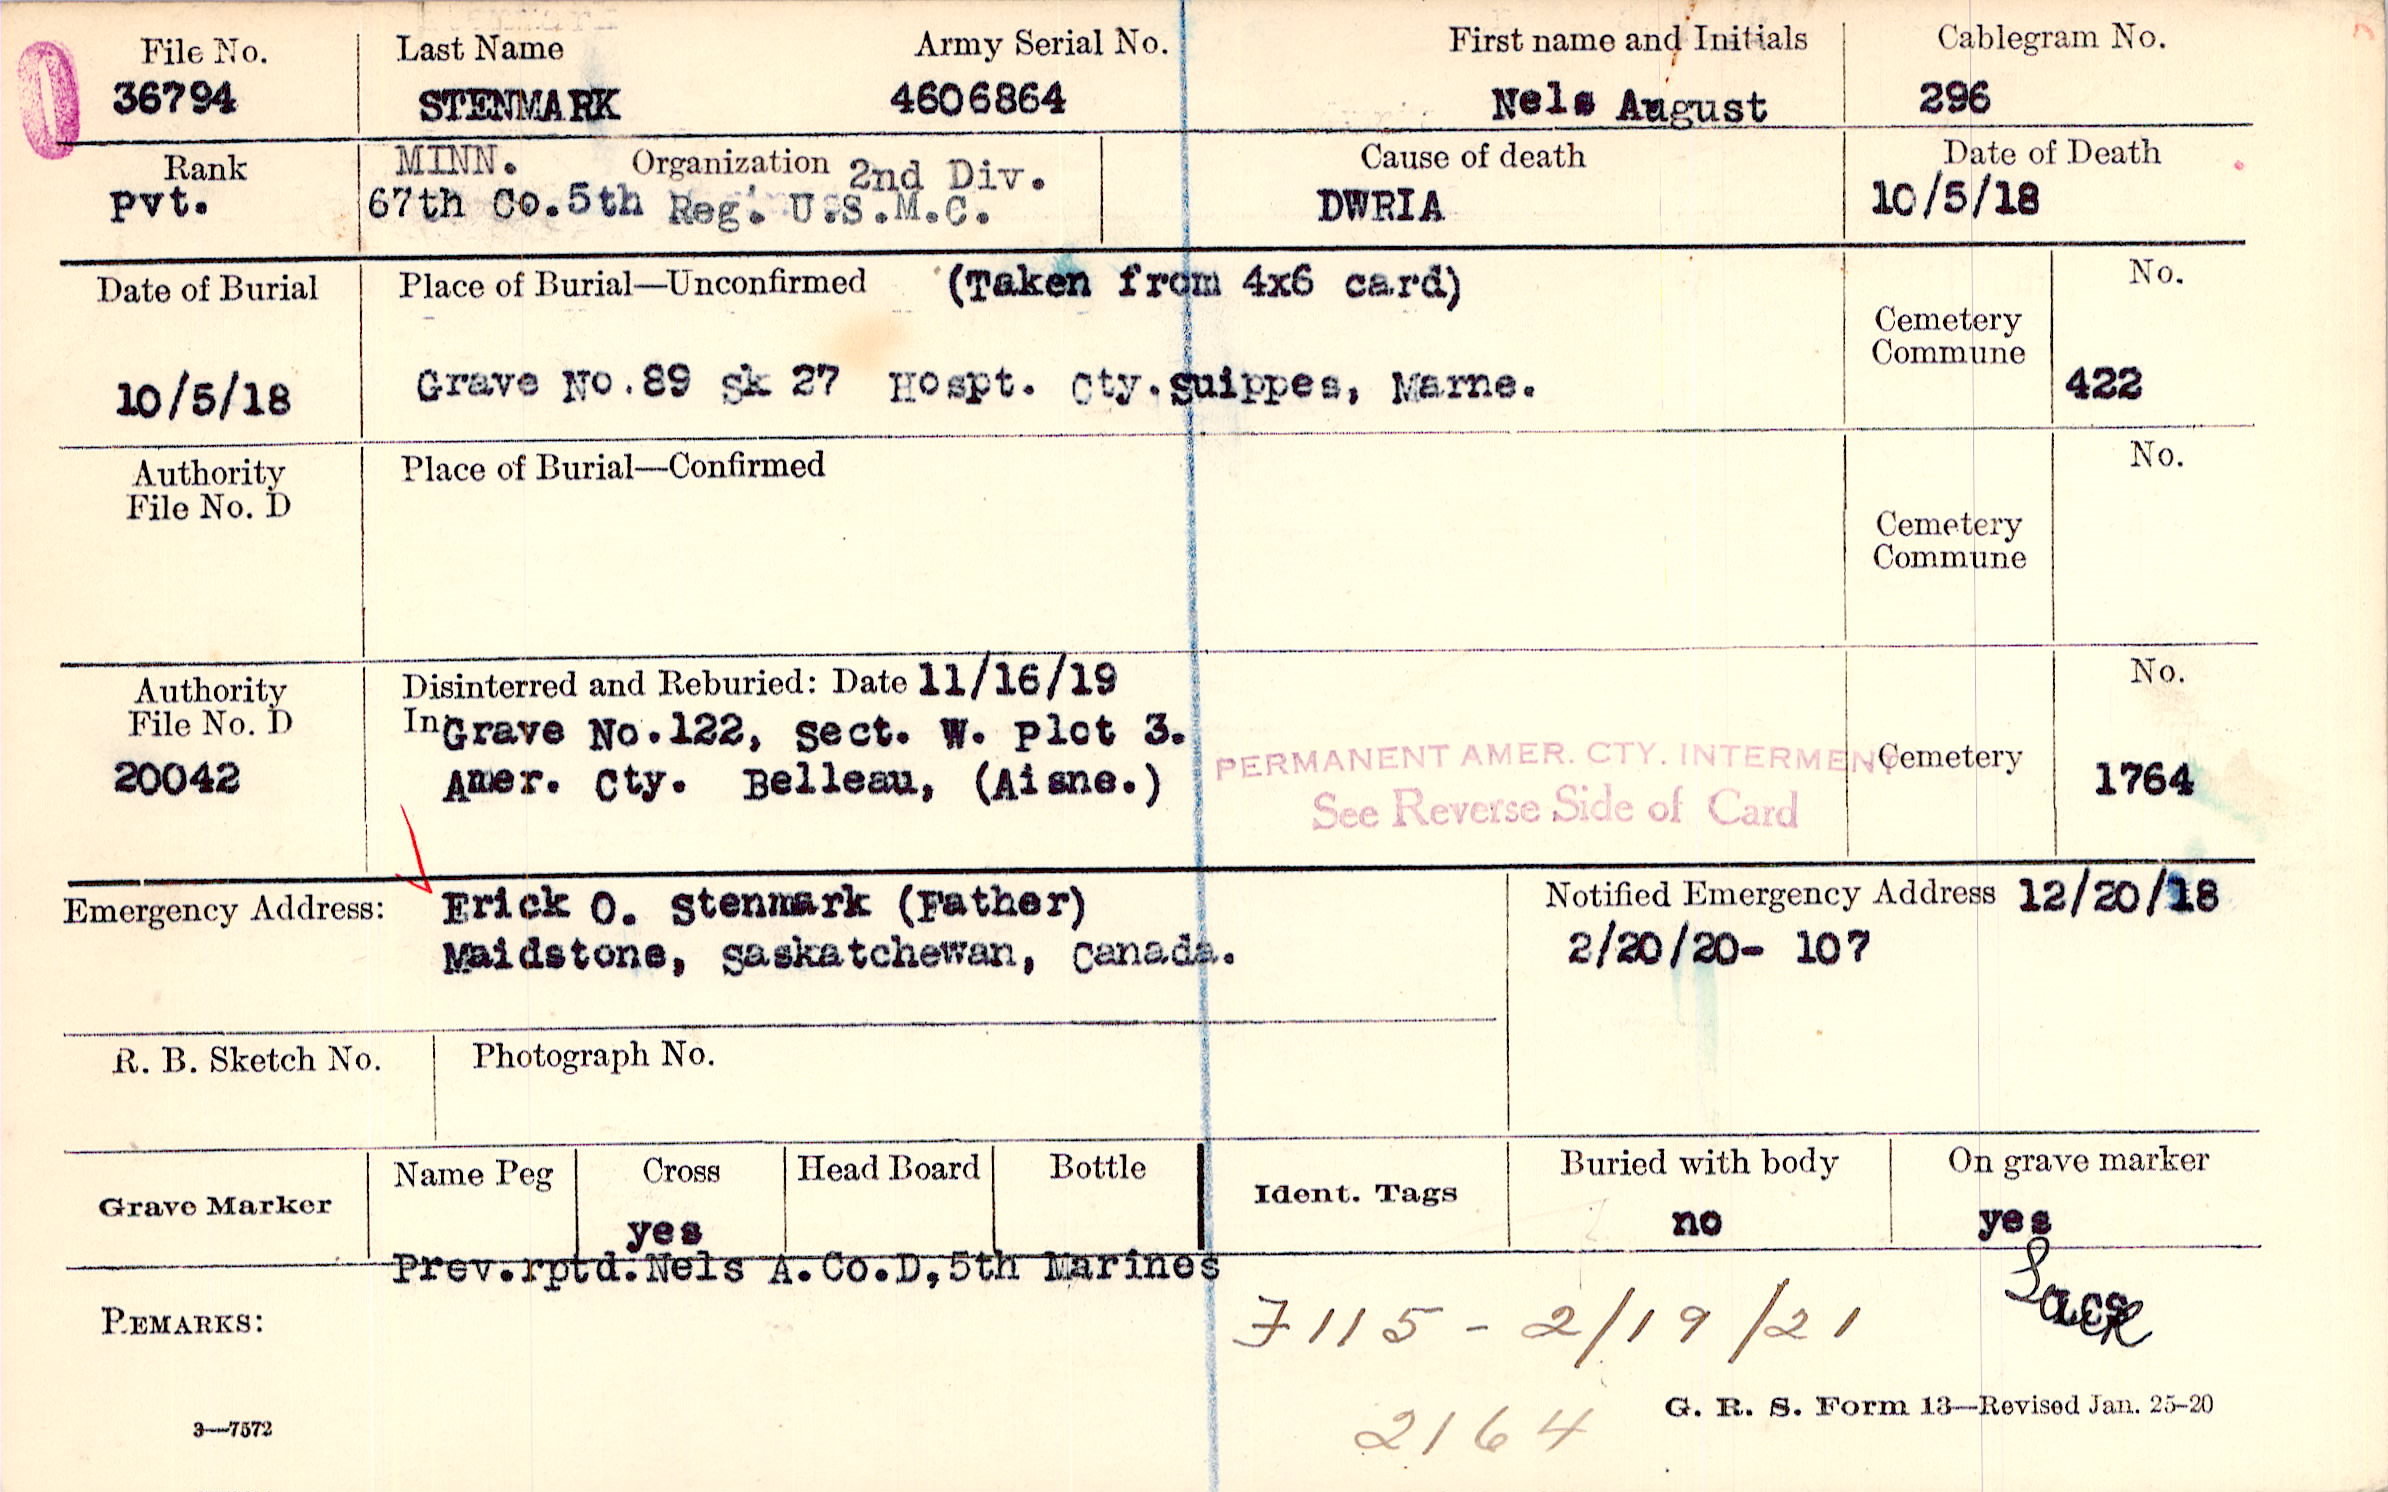 File No. Last Name Army Serial No. First name and Initials Cablegram No.
36794 STENMARK 4606864 Nels August 296
Rank MINN. Organization 2nd Div. Cause of death Date of Death
pvt. 67th Co.5th Reg. U.S.M.C. DWRIA 10/5/18
Date of Burial Place of Burial—Unconfirmed (Taken from 4x6 card) No.
Cemetery
Commune
10/5/18 Grave No.89 sk 27 Hospt. Cty.suippes, Marne. 422
Authority Place of Burial—Confirmed No.
File No. D
Cemetery
Commune
Authority Disinterred and Reburied: Date 11/16/19 No.
File No. D In Grave No.122, Sect. W. Plot 3.
PERMANENT AMER. CTY. INTERMENT Cemetery
20042 Amer. Cty. Belleau, (Aisne.) 1764
See Reverse Side of Card
Emergency Address: Erick O. Stenmark (Father) Notified Emergency Address 12/20/18
Maidstone, Saskatchewan, Canada. 2/20/20- 107
R. B. Sketch No. Photograph No.
Grave Marker Name Peg Cross Head Board Bottle Ident. Tags Buried with body On grave marker
yes no yes
Prev.rptd.Nels A.Co.D,5th Marines
REMARKS: 7115 - 2/19/21
2164
3—7572 G. R. S. Form 13—Revised Jan. 25-20